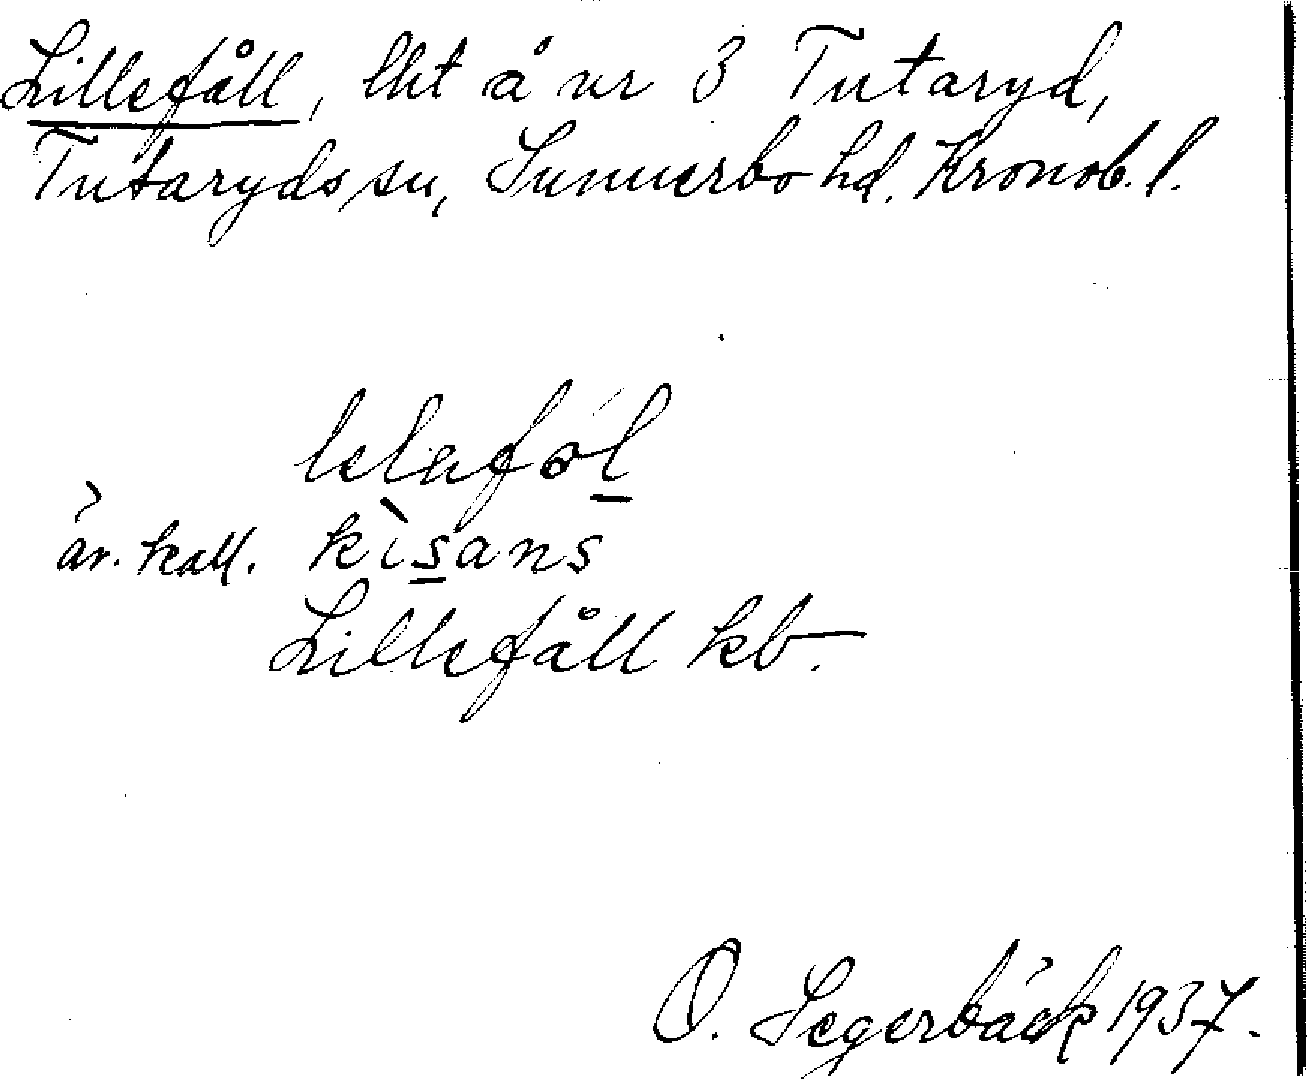 Lillefåll, lht å nr 3 Tutaryd,
Tutaryds sn, Sunnerbo hd. Kronob. l.
lelefål
äv. kall. kìsans
Lillefåll kb.
O. Segerbäck 1937.